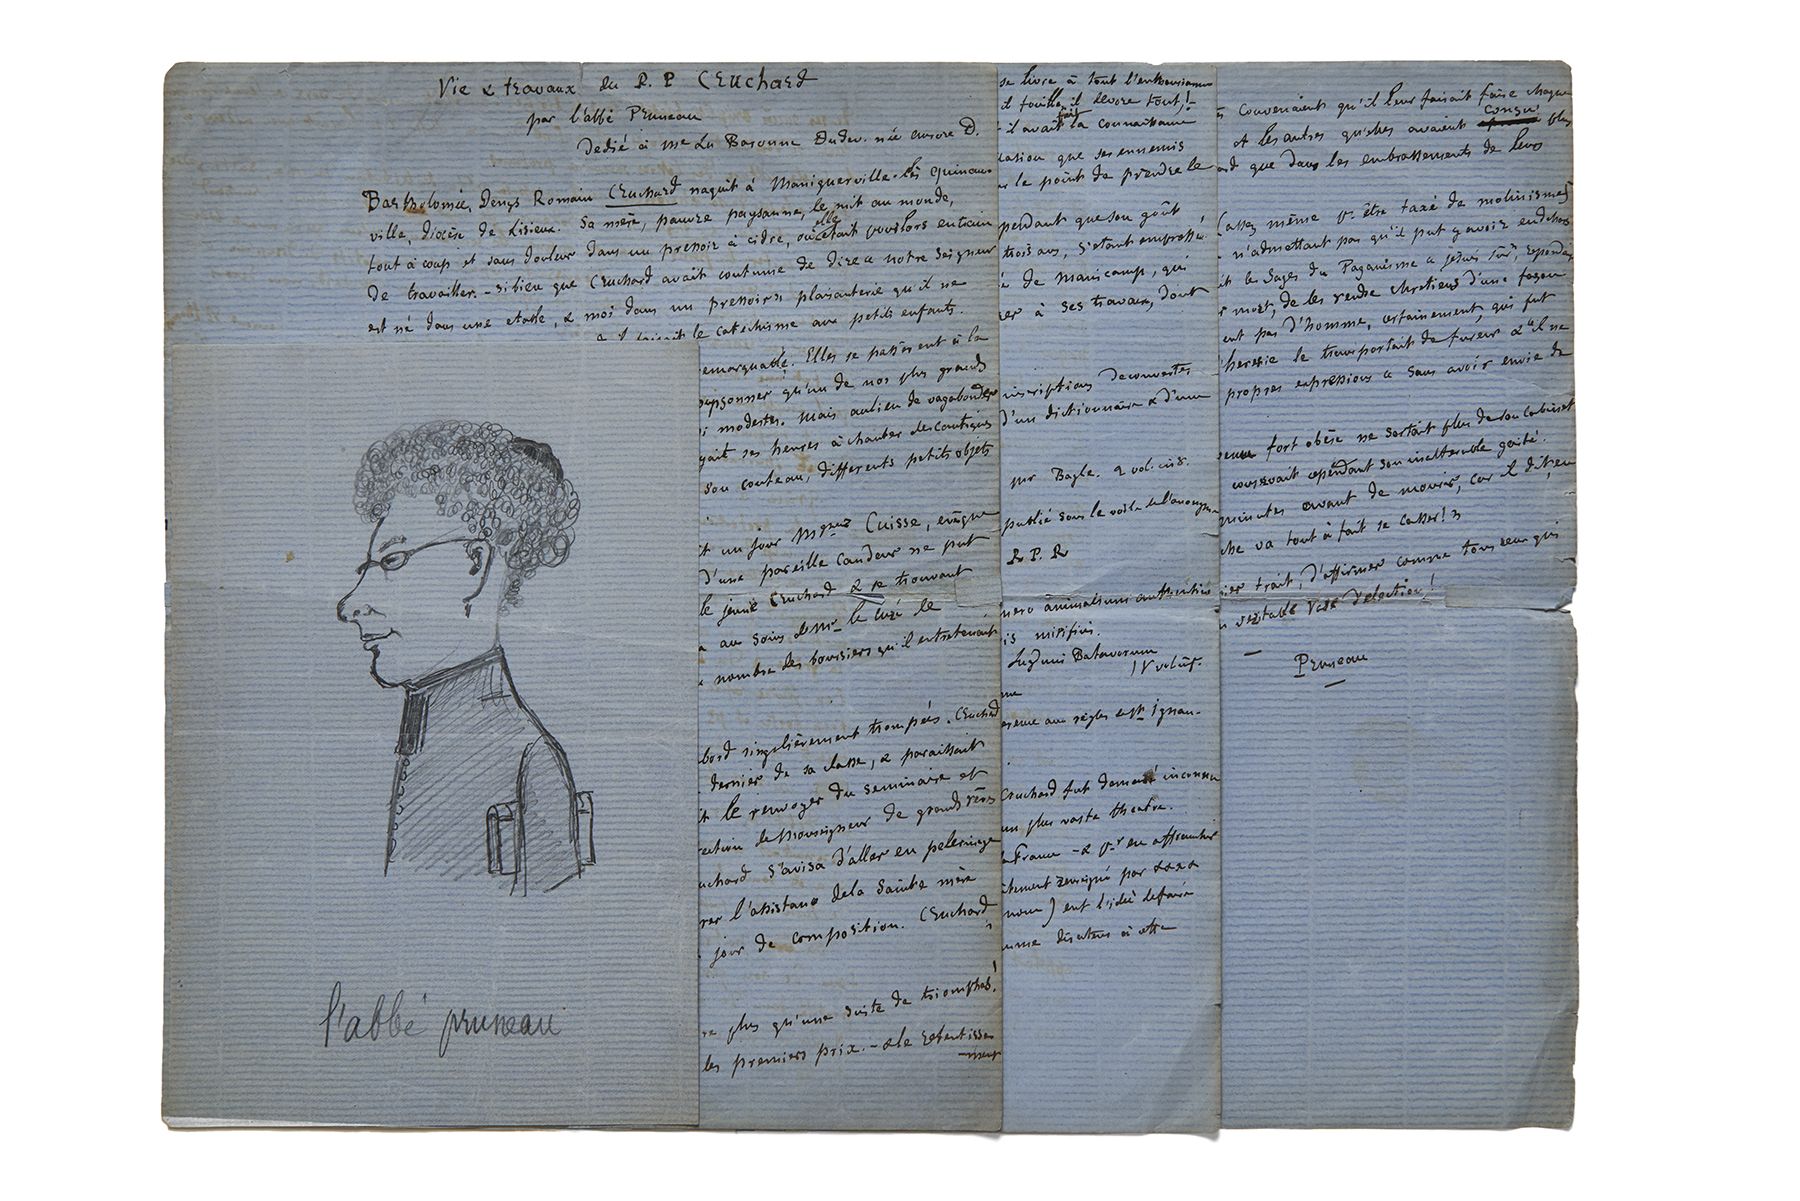 Vie & travaux du R. P Cruchard
par l'abbé Pruneau
Dedié à Me La Baronne Dudev. née Aurore D.
Bartholomée, Denys Romain Cruchard naquit à Maniquerville-lès Quinau-
ville, diocèse de Lisieux. Sa mère, pauvre paysanne, le mit au monde,
tout à coup et sans douleur dans un pressoir à cidre, où elle était pour lors en train
de travailler. - si bien que Cruchard avait coutume de dire « notre Seigneur
est né dans une etable, & moi dans un pressoir » plaisanterie qu'il ne
le catechisme aux petits enfants.
emarquable. Elles se passèrent à la
oupçonner qu'un de nos plus grands
modestes. Mais au lieu de vagabonder
ses heures à chanter des cantiques
son couteau, differents petits objets
un jour Mgneur Cuisse, evêque
d'une pareille candeur ne put
le jeune Cruchard & le trouvant
au soins de Mr le curé le
nombre des boursiers qu'il entretenait
bord singulièrement trompées. Cruchard
dernier de sa classe, & paraissait
le renvoyer du seminaire et
ection de Monseigneur de grands
uchard s'avisa d'aller en pelerinage
rer l'assistance de la Sainte mère
jour de composition. Cruchard
plus qu'une suite de triomphes!
les premiers prix. - & le retentisse
-ment
se livre à tout l'enthousiasme
il fouille, il devore tout! -
- il avait fait la connaissance
ation que ses ennemis
le point de prendre le
pendant que son goût
trois ans, s'etant emprossé
de Manicamp, qui
er à ses travaux, dont
inscriptions decouvertes
d'un dictionnaire & d'une
sur Bayle. 2 vol. in 8.
publié sous le voile de l'anonyme
R. P. R
nero animalium authentici
is mirifiris.
Lugduni Batavorum
IV volum.
aux règles de St Ignace
Cruchard fut demeuré inconnu
un plus vaste theatre.
la France - & Pr en affranchir
par
nom) eut l'idée de faire
à cette
convenaient qu'il leur faisait faire chaque
et les autres qu'elles avaient conçu plus
que dans les embrassements de leurs
assez même pr être taxé de molinisme
n'admettant pas qu'il put y avoir en dehors
le Sages du Paganisme a Jesus
mort, de les rendre chretiens d'une façon
ent pas d'homme, certainement, qui fut
heresie le transportait de fureur & "il ne
propres expressions « sans avoir envie de
fort obèse ne sortait plus de son cabinet
conservait cependant son inalterable gaité.
minutes avant de mourir, car il dit, en
che va tout à fait se casser! »
ier trait, d'affirmer comme tous ceux qui
veritable vase d'election!
Pruneau
l'abbé pruneau